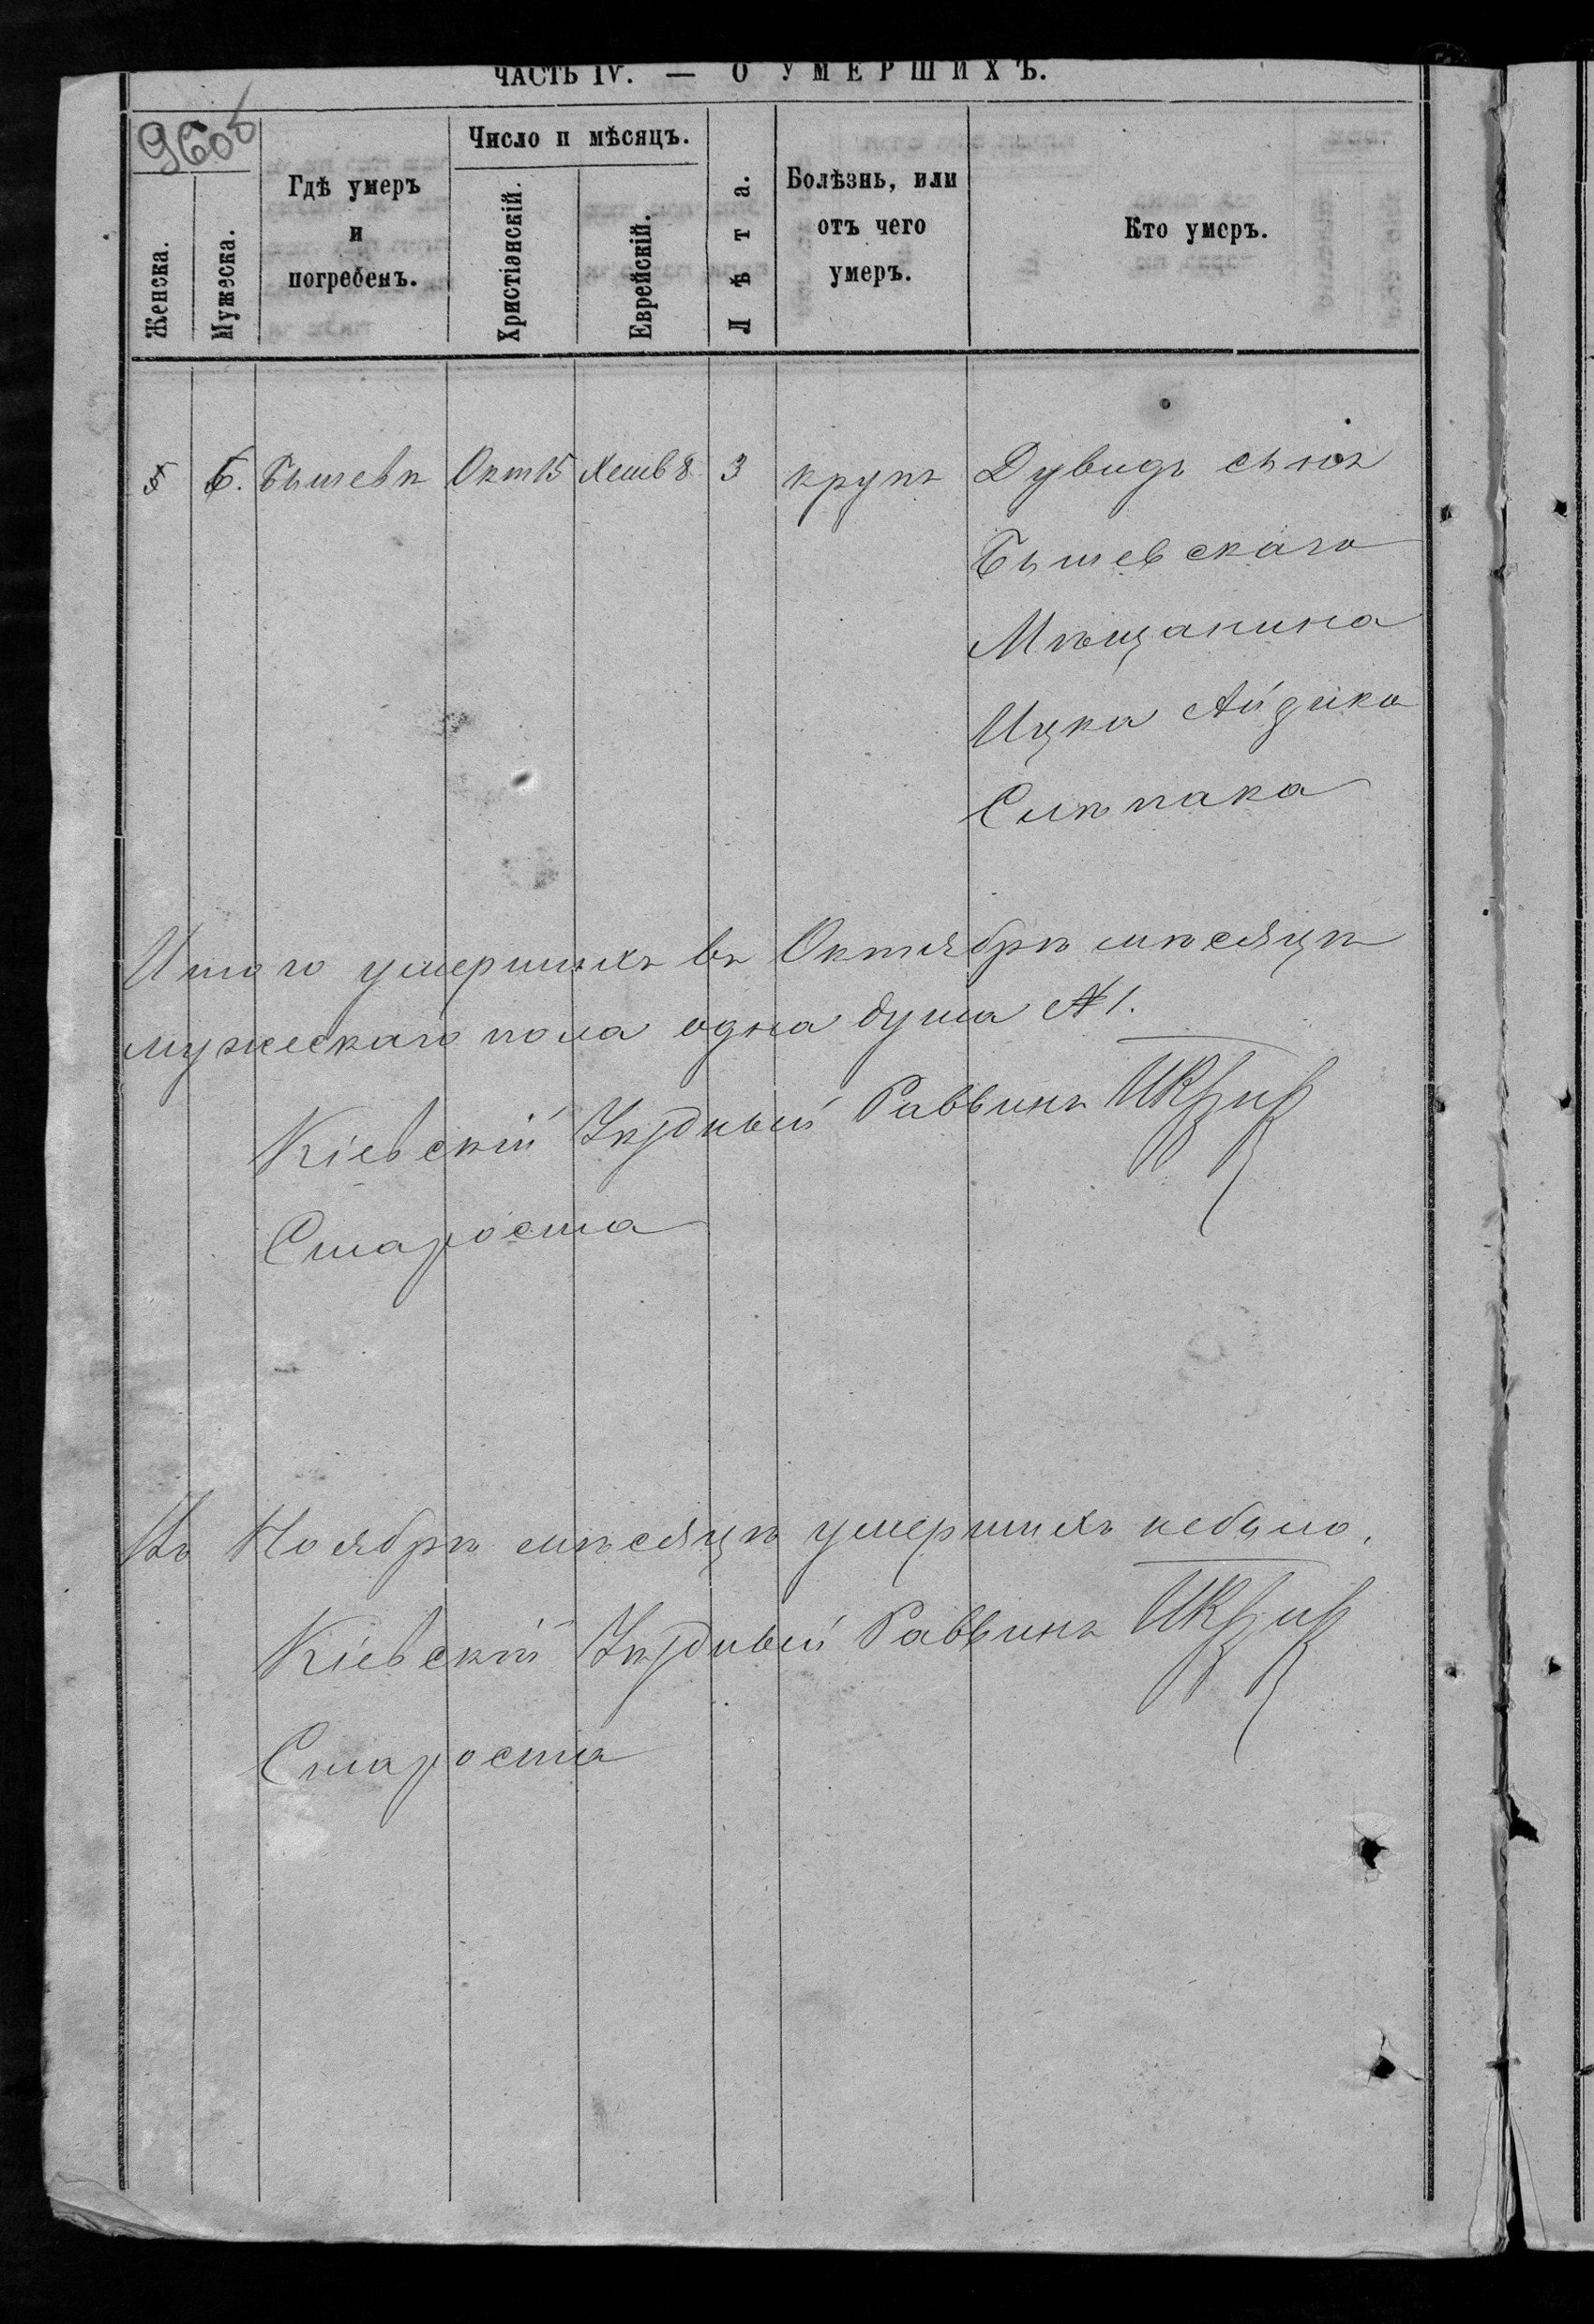 ЧАСТЬ IV. — О УМЕРШИХЪ.
960б
Женска.
Мужеска.
Гдѣ умеръ и погребенъ.
Число и мѣсяцъ.
Христіанскій.
Еврейскій.
Лѣта.
Болѣзнь, или отъ чего умеръ.
Кто умеръ.
6. Бышевѣ Окт 15 Хешв 8 3 крупъ Дувидъ сынъ
Бышевскаго
Мѣщанина
Ицка Айзика
Слѣпака
Итого умершихъ въ Октябрѣ мѣсяцѣ
мужескаго пола одна душа № 1.
Кіевскій Уѣздный Раввинъ
Староста
Въ Ноябрѣ мѣсяцѣ умершихъ небыло.
Кіевскій Уѣздный Раввинъ
Староста